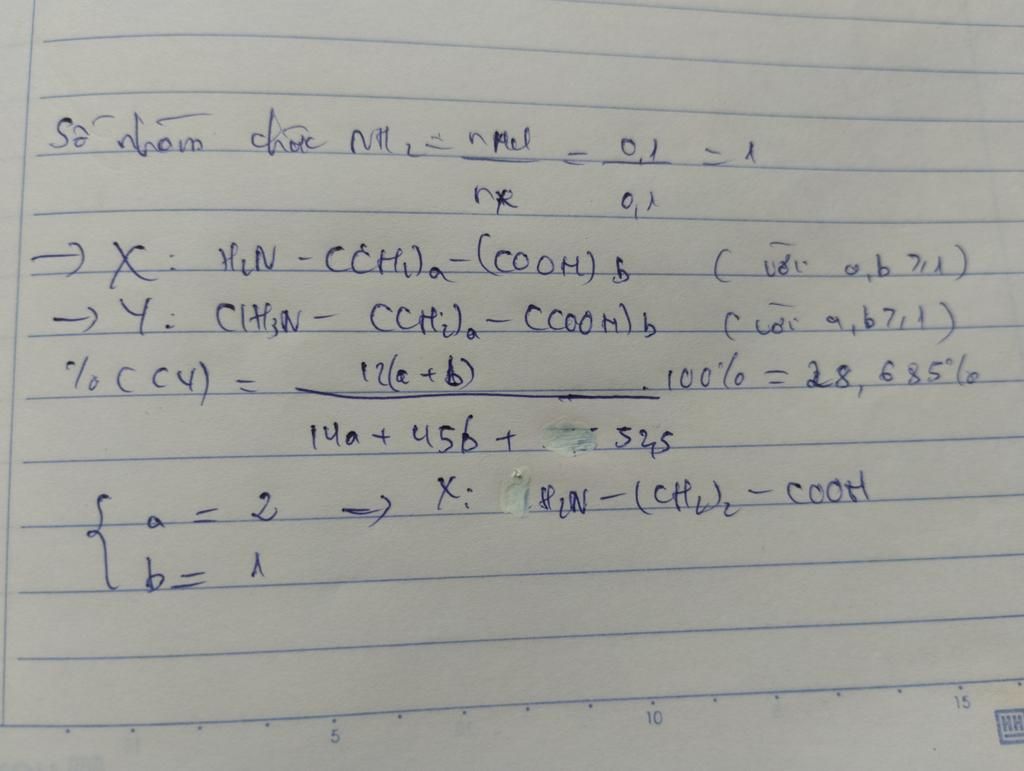 Số nhóm chức NH₂ = nHCl / nX = 0,1 / 0,1 = 1
→ X: H₂N - (CH₂)a - (COOH)b ( với a,b ≥ 1)
→ Y: ClH₃N - (CH₂)a - (COOH)b ( với a,b ≥ 1)
% C (Y) = 12(a + b) / 14a + 45b + 52,5 . 100% = 28,685%
{ a = 2 → X: H₂N - (CH₂)₂ - COOH
b = 1
5 10 15
HH